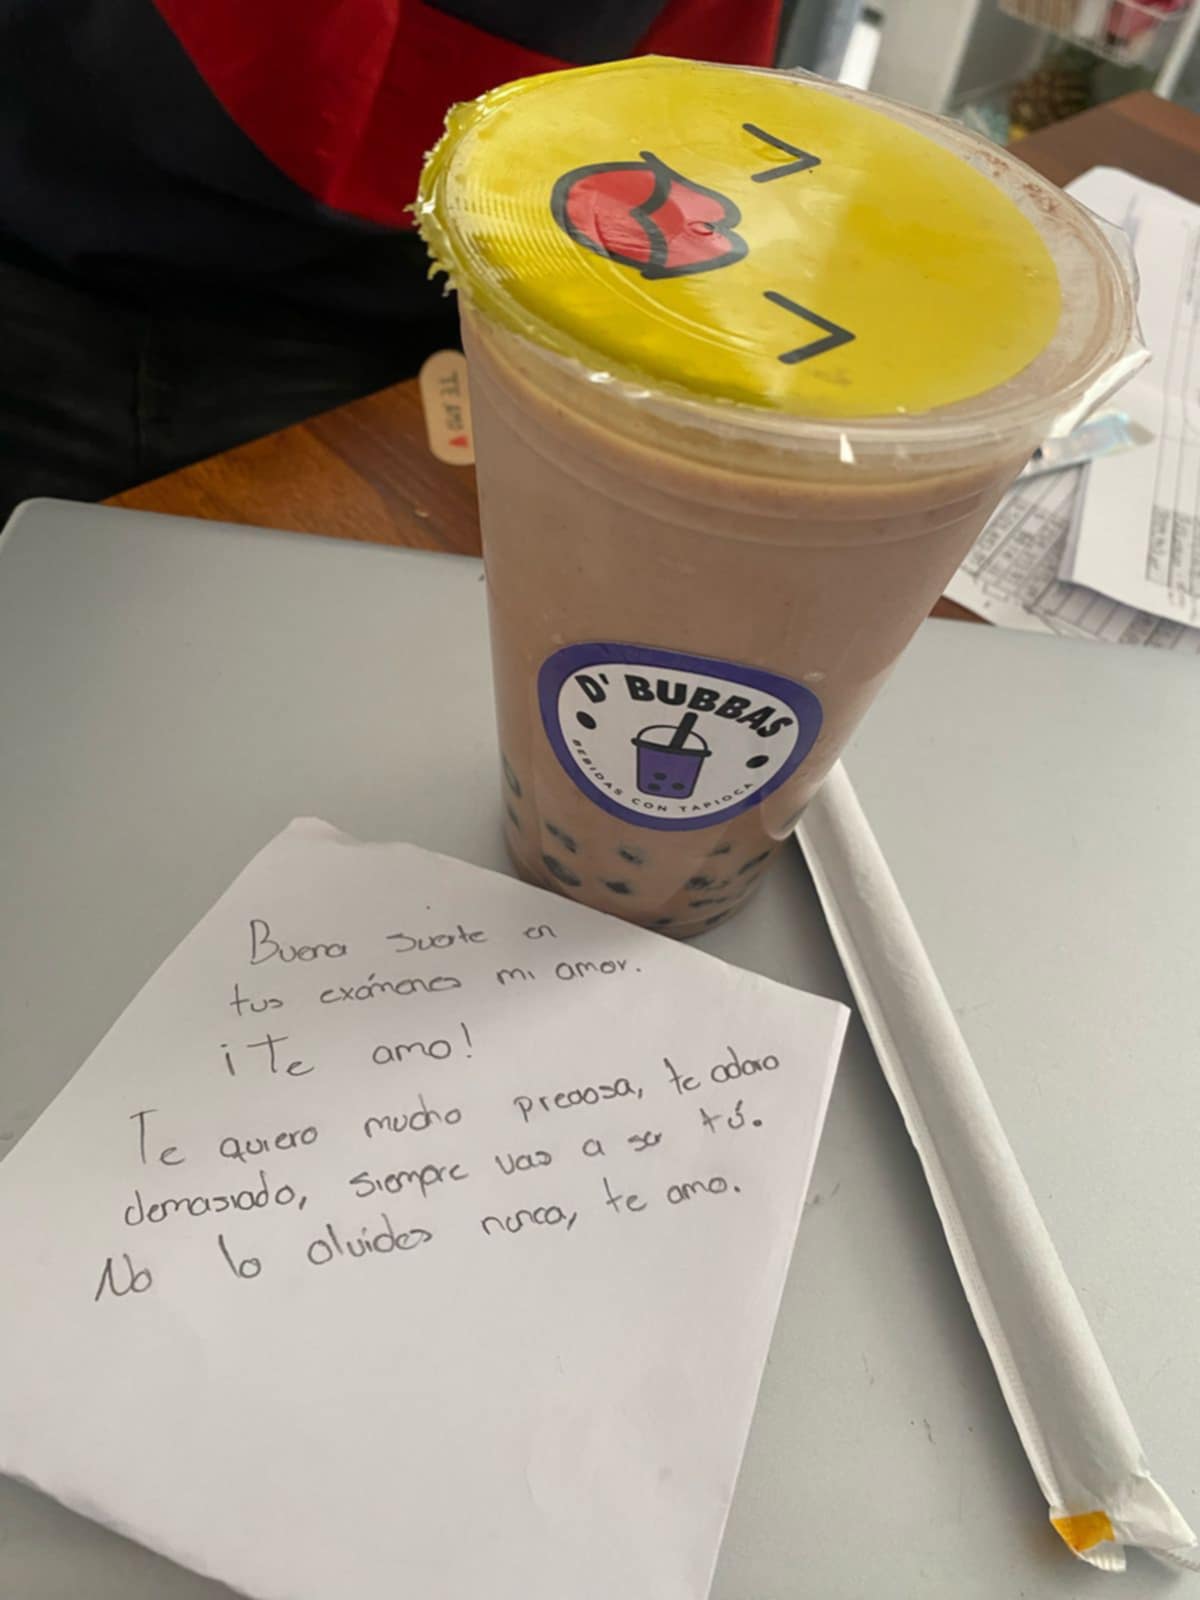 TE AMO
D' BUBBAS
BEBIDAS CON TAPIOCA
Buena suerte en
tus exámenes mi amor.
¡Te amo!
Te quiero mucho preciosa, te adoro
demasiado, siempre vas a ser tú.
No lo olvides nunca, te amo.